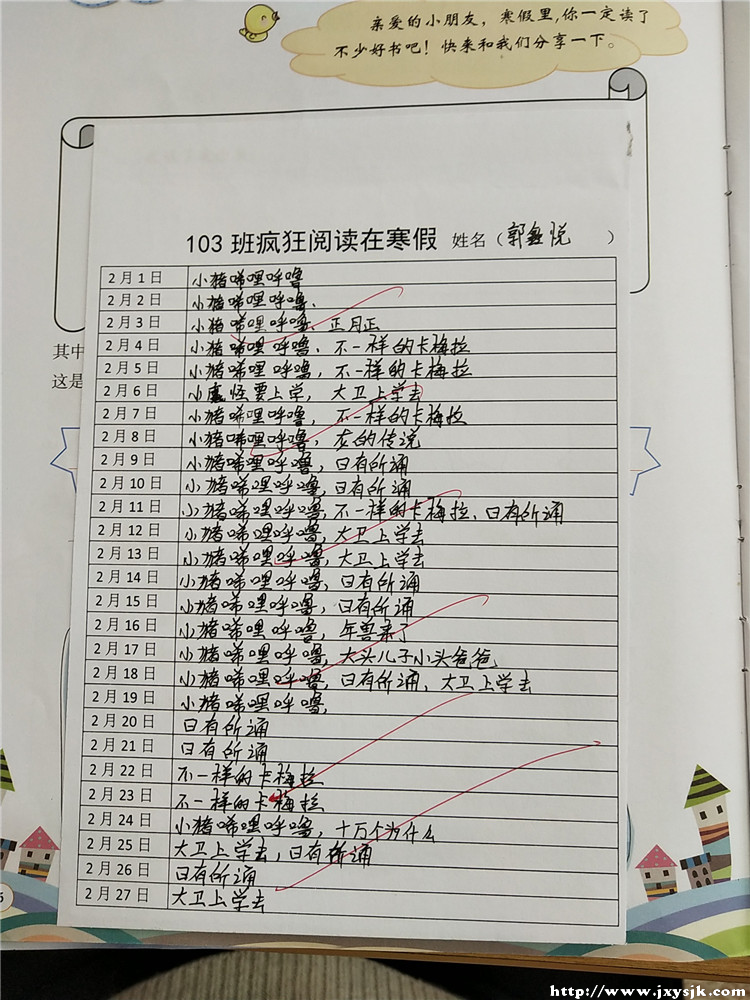 亲爱的小朋友，寒假里，你一定读了
不少好书吧！快来和我们分享一下。
103 班疯狂阅读在寒假 姓名（郭鑫悦 ）
2月1日 小猪唏哩呼噜
2月2日 小猪唏哩呼噜、
2月3日 小猪唏哩呼噜、正月正
2月4日 小猪唏哩呼噜、不一样的卡梅拉
2月5日 小猪唏哩呼噜，不一样的卡梅拉
2月6日 小魔怪要上学，大卫上学去
2月7日 小猪唏哩呼噜，不一样的卡梅拉
2月8日 小猪唏哩呼噜，龙的传说
2月9日 小猪唏哩呼噜，日有所诵
2月10日 小猪唏哩呼噜，日有所诵
2月11日 小猪唏哩呼噜，不一样的卡梅拉、日有所诵
2月12日 小猪唏哩呼噜，大卫上学去
2月13日 小猪唏哩呼噜，大卫上学去
2月14日 小猪唏哩呼噜，日有所诵
2月15日 小猪唏哩呼噜，日有所诵
2月16日 小猪唏哩呼噜，年兽来了
2月17日 小猪唏哩呼噜，大头儿子小头爸爸
2月18日 小猪唏哩呼噜，日有所诵、大卫上学去
2月19日 小猪唏哩呼噜，
2月20日 日有所诵
2月21日 日有所诵
2月22日 不一样的卡梅拉
2月23日 不一样的卡梅拉
2月24日 小猪唏哩呼噜，十万个为什么
2月25日 大卫上学去，日有所诵
2月26日 日有所诵
2月27日 大卫上学去
其中
这是
http://www.jxysjk.com